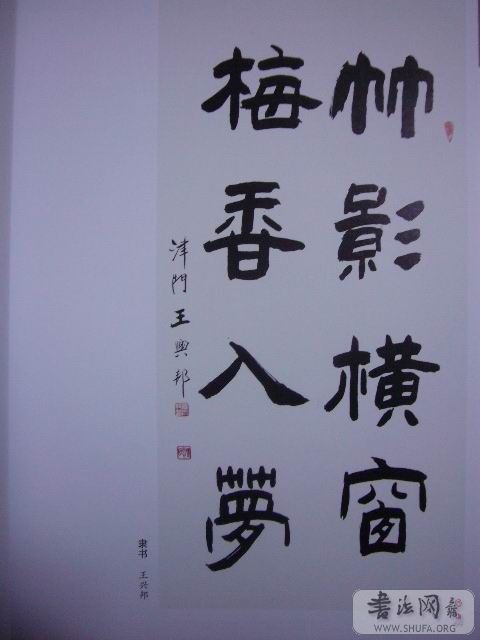 竹影橫窗
梅香入夢
津門王興邦
隶书 王兴邦
书法网
WWW.SHUFA.ORG